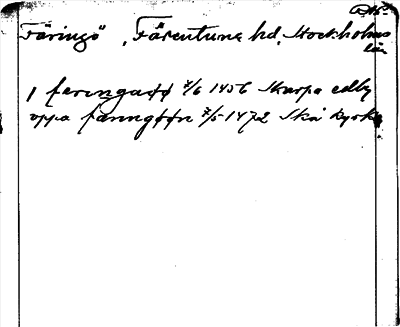 Färingö, Färentuna hd, Stockholms
län
I feringaöö 7/6 1456 Skarpa edby
oppa färingöön 7/5 1472 Skå kyrka